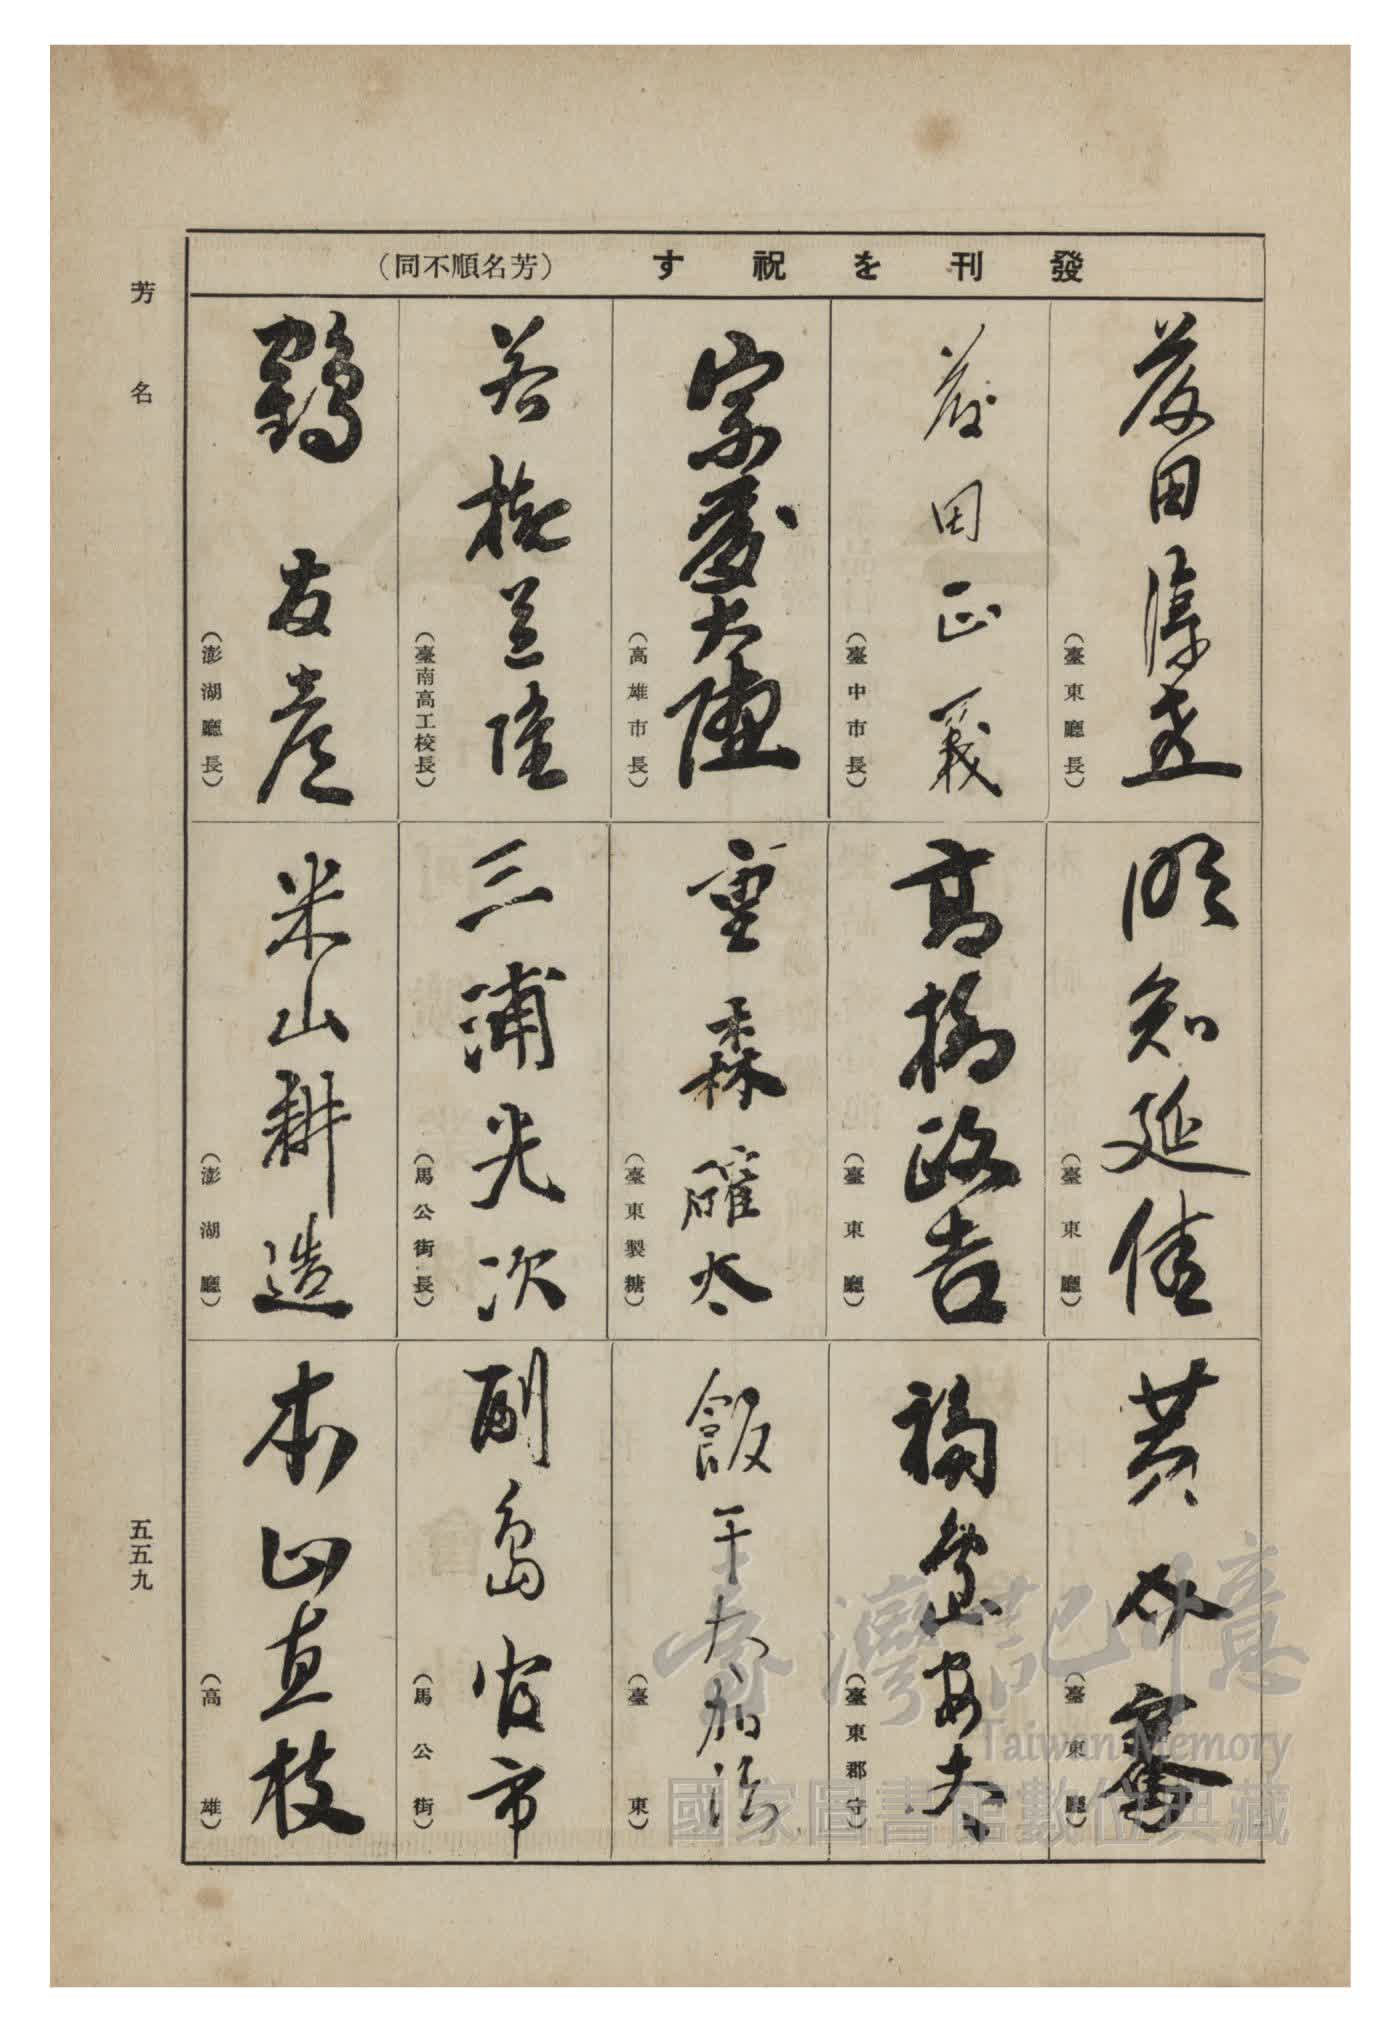 發刊を祝す
(芳名順不同)
藤田淳孝
(臺東廳長)
藤田正義
(臺中市長)
宗藤大陸
(高雄市長)
若槻道隆
(臺南高工校長)
鶴友彦
(澎湖廳長)
明知延佳
(臺東廳)
高橋政吉
(臺東廳)
重森確太
(臺東製糖)
三浦光次
(馬公街長)
米山耕造
(澎湖廳)
黄
(臺東廳)
福島安夫
(臺東郡守)
飯干太加治
(臺東)
副島宦市
(馬公街)
本山直枝
(高雄)
芳名
五五九
臺灣記憶
Taiwan Memory
國家圖書館數位典藏